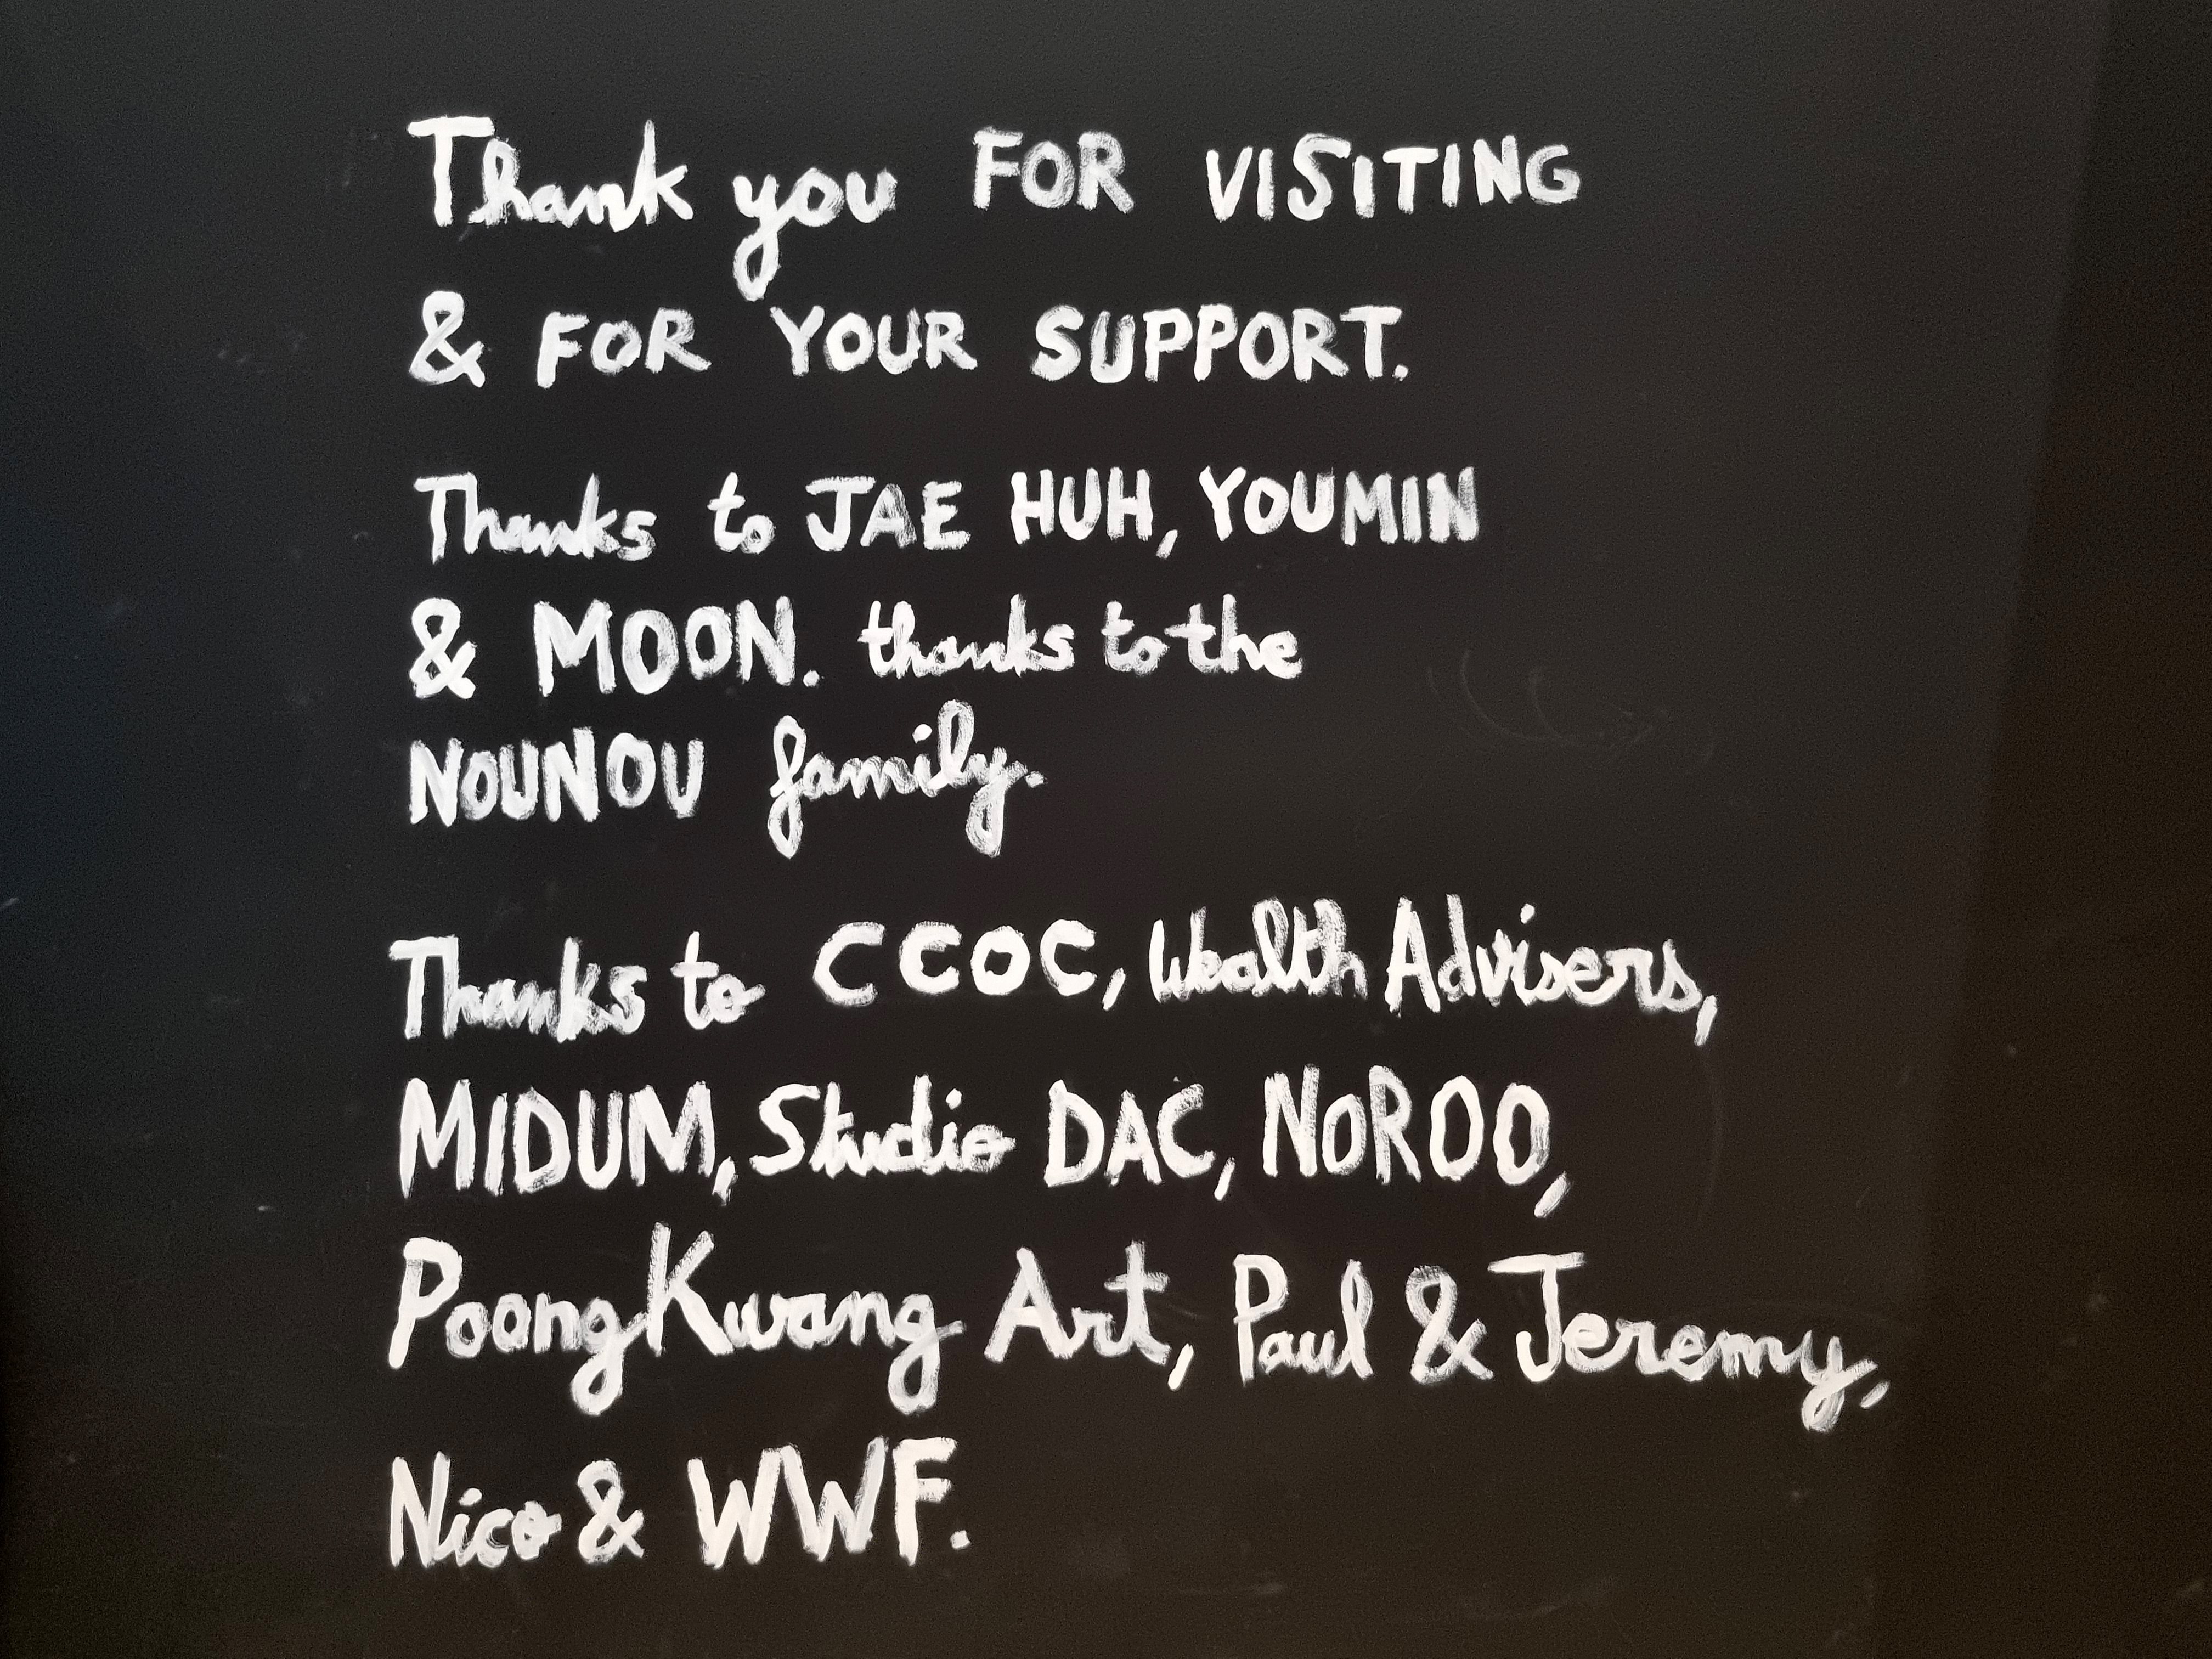 Thank you FOR VISITING
& FOR YOUR SUPPORT.
Thanks to JAE HUH, YOUMIN
& MOON. thanks to the
NOUNOU family.
Thanks to CCOC, Wealth Advisers,
MIDUM, Studio DAC, NOROO,
PoongKwang Art, Paul & Jeremy,
Nico & WWF.